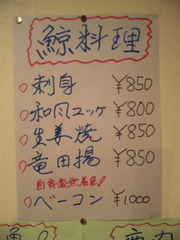 鯨料理
刺身 ¥850
和風ユッケ ¥800
生姜焼 ¥850
竜田揚 ¥850
自家製無着色!
ベーコン ¥1000